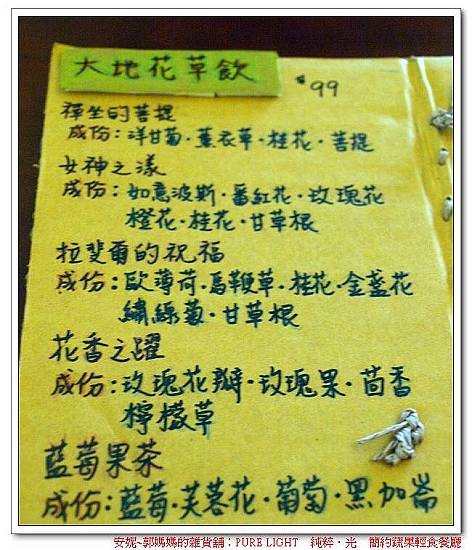 大地花草飲
$99
禪坐的菩提
成份:洋甘菊·薰衣草·桂花·菩提
女神之漾
成份:如意波斯·番紅花·玫瑰花
橙花·桂花·甘草根
拉斐爾的祝福
成份:歐薄荷·馬鞭草·桂花·金盞花
繡線菊·甘草根
花香之躍
成份:玫瑰花瓣·玫瑰果·茴香
檸檬草
藍莓果茶
成份:藍莓·芙蓉花·葡萄·黑加崙
安妮~郭媽媽的雜貨舖:PURE LIGHT 純粹·光 簡約蔬果輕食餐廳